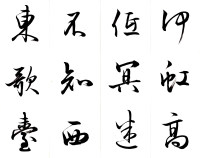 東不伍沖
歌知冥虹
臺西迷高